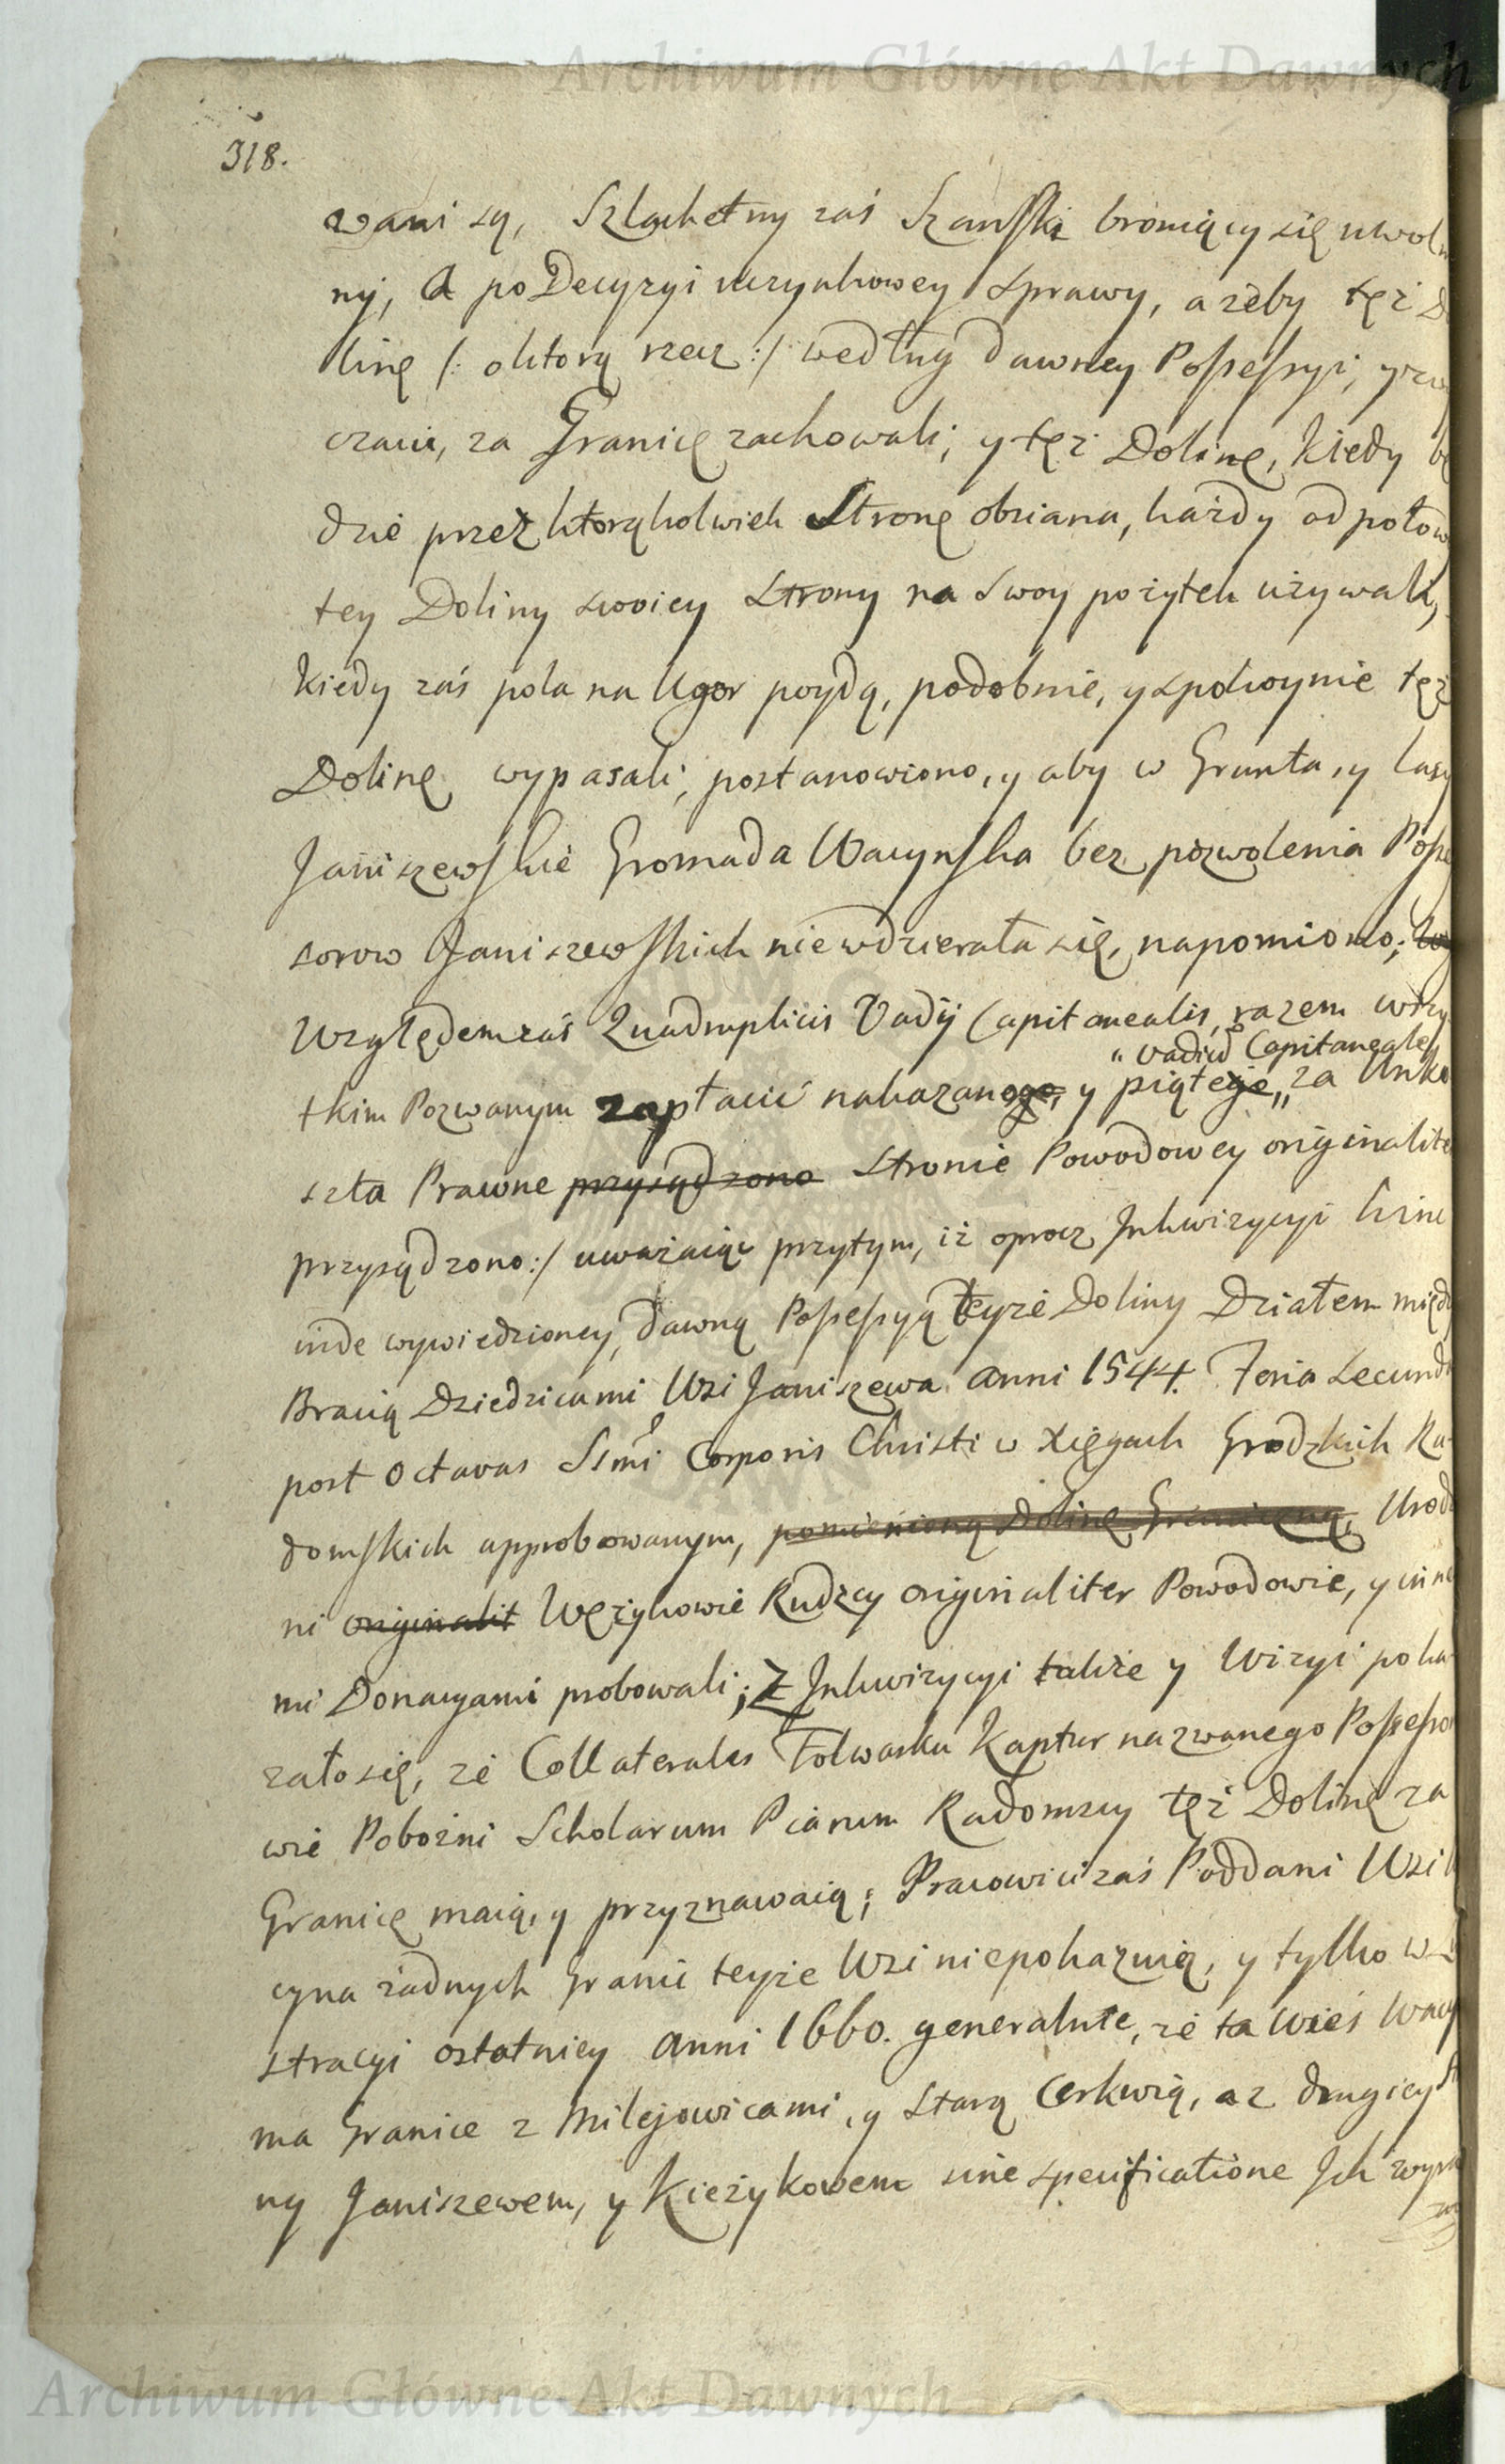 Archiwum Główne Akt Dawnych
318.
wani są, Szlachetny zaś Szański broniący się uwol
ny, A po Decyzyi uczynkowey Sprawy, a żeby też Do
linę /: o ktorą rzecz :/ według dawney Possessyi, y zwy
czaiu, za Granicę zachowali; y tęż Dolinę, kiedy bę
dzie przez ktorąkolwiek Stronę obsiana, każdy od połow
tey Doliny swoiey Strony na Swoy pożytek używali,
kiedy zaś pola na Ugor poydą, podobnie, y spolnynie tęż
Dolinę wypasali, postanowiono, y aby w Grunta, y lasy
Janiszewskie Gromada Wacynska bez pozwolenia Posse
sorow Janiszewskich niewdzierała się, napomiono;
Względem zaś Quadruplicis Vadij Capitanealis, razem wszy
" vadiū Capitaneale
tkim Pozwanym zapłacić nakazanogo, y piątego,, za Unko
szta Prawne przysądzono Stronie Powodowey originalite
przysądzono :/ uważaiąc przytym, iż oprocz Inkwizycyi hinc
inde wywiedzioney, dawną Possessyą teyże Doliny Działem międ
Bracią Dziedzicami Wsi Janiszewa anni 1544. Feria Secund
post Octavas SSmi Corporis Christi w Xięgach Grodzkich Ra-
domskich approbowanym, pomienioną Dolinę Graniczną, Urodz
ni originalit Wężykowie Rudzcy originaliter Powodowie, y inne
mi Donacyami probowali; Z Inkwizycyi także y Wizyi poka-
zało się, że Collaterales Folwarku Kaptur nazwanego Possesso
wie Pobożni Scholarum Piarum Radomscy też Dolinę za
Granicę maią, y przyznawaią; Pracowici zaś Poddani Wsi W
cyna żadnych Granic teyże Wsi niepokazuią, y tylko w
stracyi ostatniey anni 1660. generalnie, że ta Wieś Wacy
ma Granice z Milejowicami, y Starą Cerkwią, a z drugiey St
ny Janiszewem, y Kieżykowem sine specificatione Ich
Archiwum Główne Akt Dawnych